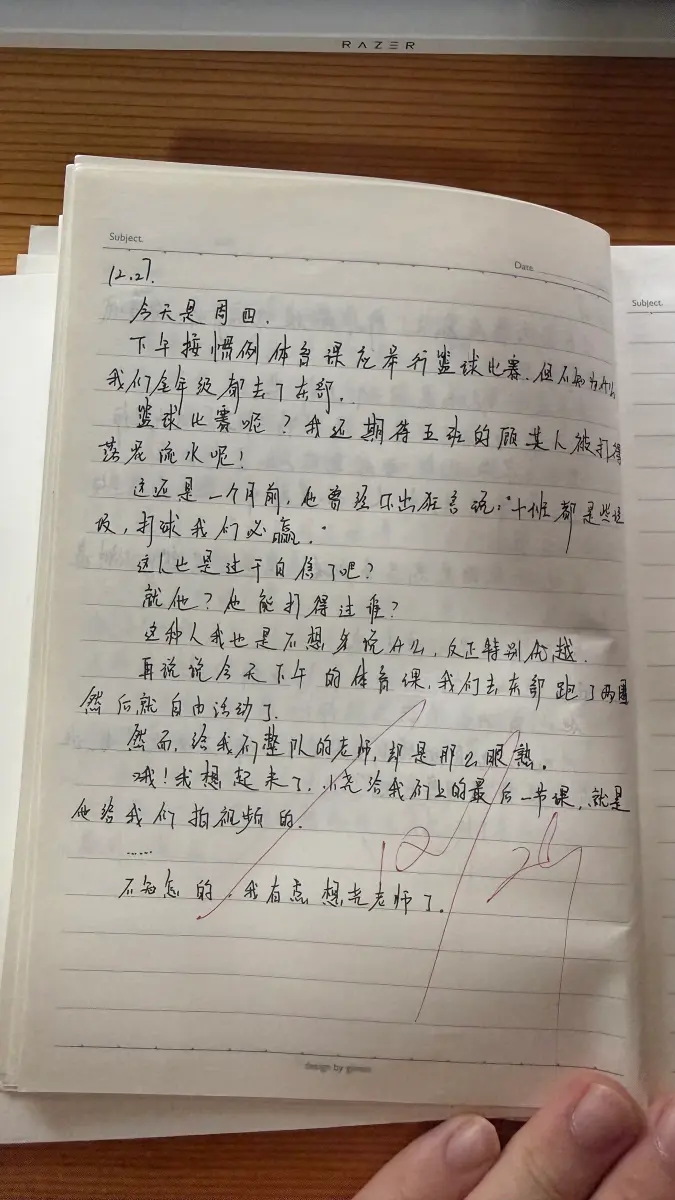 RAZER
Subject.
Date
Subject.
12.27.
今天是周四.
下午按惯例体育课应举行篮球比赛.但不知为什么
我们全年级都去了东部.
篮球比赛呢?我还期待五班的顾某人被打得
落花流水呢!
这还是一个月前,他曾经口出狂言说:"十班都是些垃
圾,打球我们必赢."
这人也是过于自信了吧?
就他?他能打得过谁?
这种人我也是不想多说什么,反正特别优越.
再说说今天下午的体育课,我们去东部跑了两圈
然后就自由活动了.
然而,给我们整队的老师,却是那么眼熟.
哦!我想起来了,小尧给我们上的最后一节课,就是
他给我们拍视频的.
......
不知怎的,我有点想尧老师了.
design by